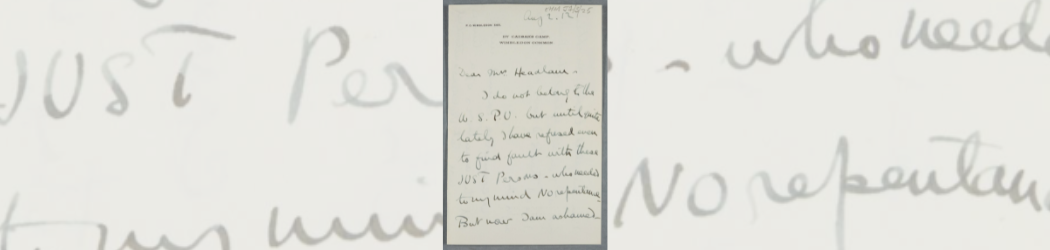 JUST Per
- who need
to my min
No repentan
Aug
Dear Mrs Headlam -
I do not belong to the
S. P. U. but until quite
lately I have refused even
to find fault with these
JUST Persons - who needed
to my mind No repentance
But now I am ashamed